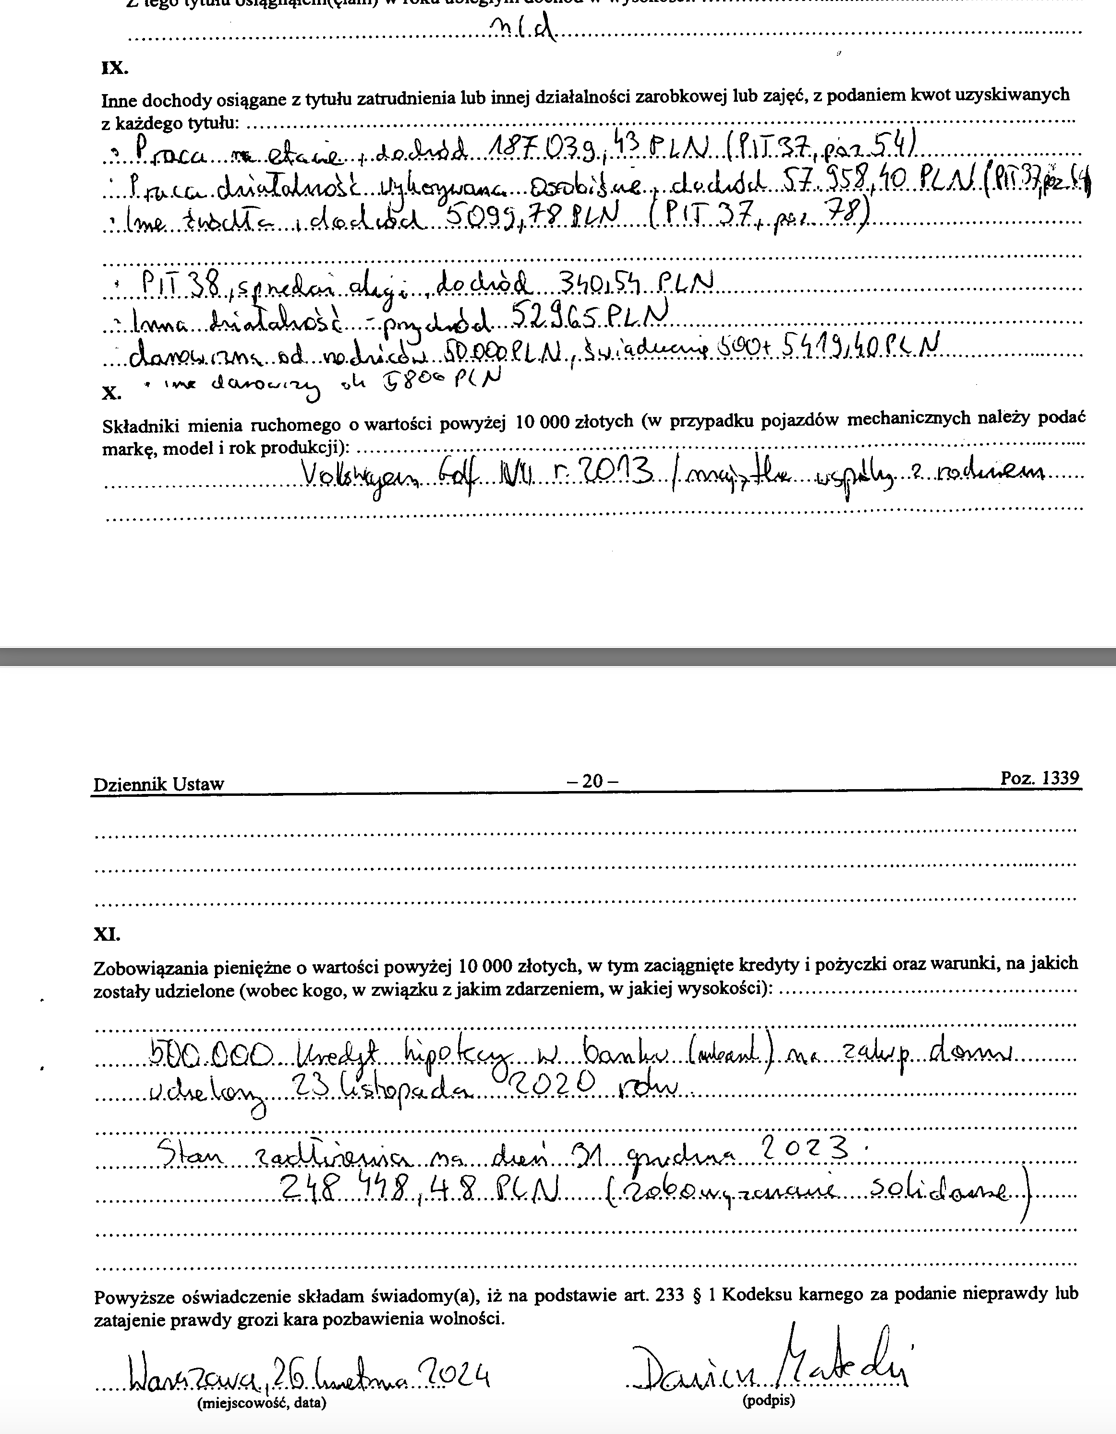 Z tego tytułu osiągnąłem(ęłam) w roku ubiegłym dochód w wysokości:
n/d
IX.
Inne dochody osiągane z tytułu zatrudnienia lub innej działalności zarobkowej lub zajęć, z podaniem kwot uzyskiwanych
z każdego tytułu:
Praca na etacie, dochód 187 039,43 PLN (PIT 37, poz 54)
Praca działalność wykonywana osobiście, dochód 57 958,40 PLN (PIT 37, poz 64)
Inne źródła, dochód 5099,78 PLN (PIT 37, poz. 78)
PIT 38, sprzedaż akcji, dochód 340,54 PLN
Inna działalność - przychód 52965 PLN
darowizna od rodziców 50.000 PLN, świadczenie 500+ 5419,40 PLN
inne darowizny ok 5800 PLN
X.
Składniki mienia ruchomego o wartości powyżej 10 000 złotych (w przypadku pojazdów mechanicznych należy podać
markę, model i rok produkcji):
Volkswagen Golf VII r. 2013 / majątek wspólny z
Dziennik Ustaw – 20 – Poz. 1339
XI.
Zobowiązania pieniężne o wartości powyżej 10 000 złotych, w tym zaciągnięte kredyty i pożyczki oraz warunki, na jakich
zostały udzielone (wobec kogo, w związku z jakim zdarzeniem, w jakiej wysokości):
500.000 kredyt hipoteczny w banku (mbank) na zakup domu
udzielony 23 listopada 2020 roku
Stan zadłużenia na dzień 31 grudnia 2023:
248 448,48 PLN (zobowiązanie solidarne)
Powyższe oświadczenie składam świadomy(a), iż na podstawie art. 233 § 1 Kodeksu karnego za podanie nieprawdy lub
zatajenie prawdy grozi kara pozbawienia wolności.
Warszawa, 26 kwietnia 2024 Dariusz Matecki
(miejscowość, data) (podpis)